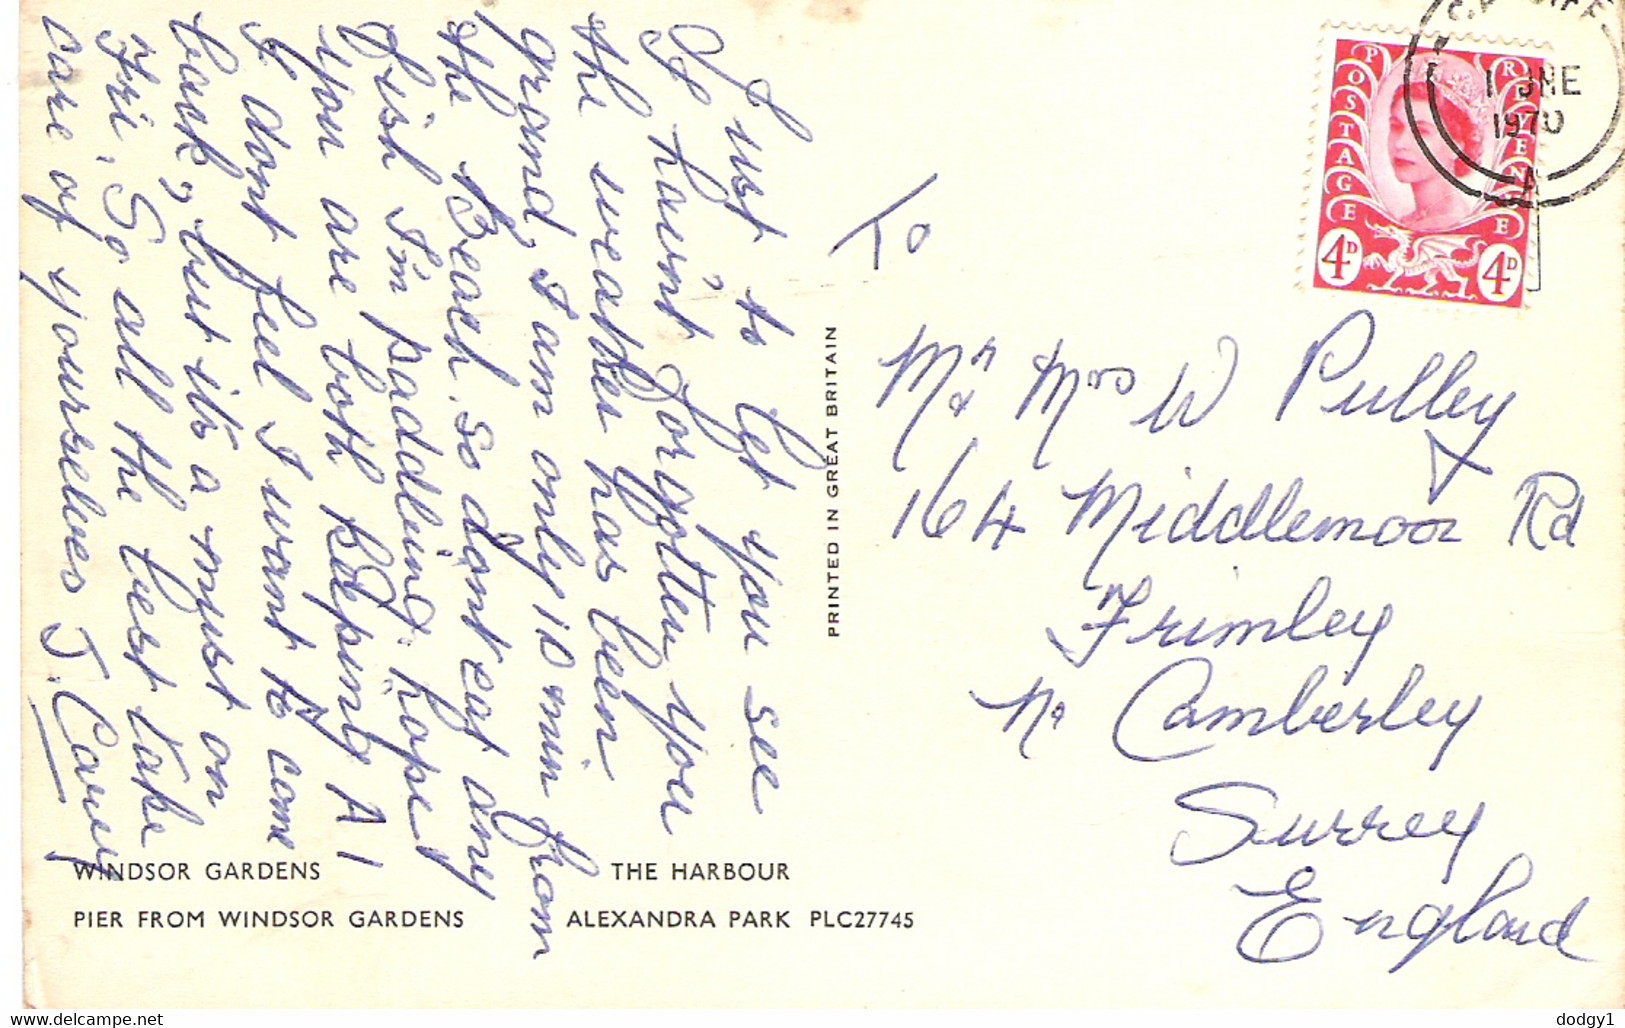 Just to let you see
I havin't forgotten you
the weather has been
grand, I am only 10 min from
the Beach. so don't eat any
fish I'm paddling. hope
you are both keeping A1
I dont feel I want to come
back, but its a must on
Fri, So all the best take
care of yourselves J. Carey
To
Mr & Mrs W Pulley
164 Middlemoor Rd
Frimley
Nr Camberley
Surrey
England
POSTAGE REVENUE
4D 4D
1 JNE
1970
PRINTED IN GREAT BRITAIN
WINDSOR GARDENS THE HARBOUR
PIER FROM WINDSOR GARDENS ALEXANDRA PARK PLC27745
www.delcampe.net dodgy1